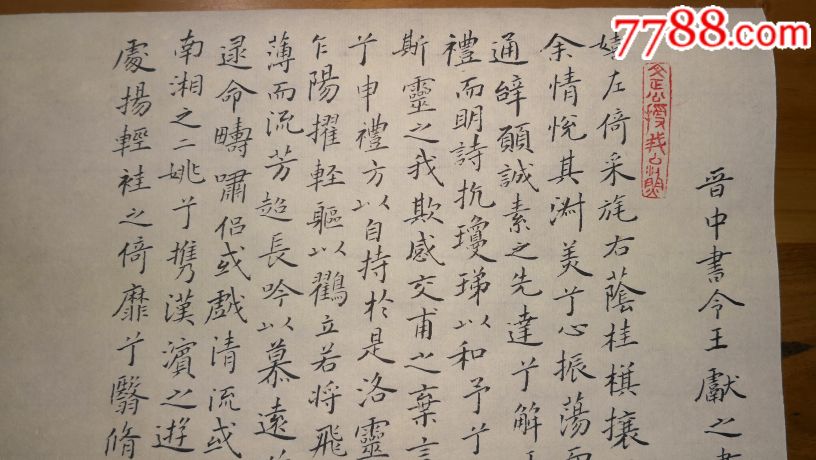 7788.com
晋中書令王獻之書
嬉左倚采旄右蔭桂棋攘
余情恱其淑美兮心振蕩而
通辭願誠素之先達兮解
禮而明詩抗瓊珶以和予兮
斯靈之我欺感交甫之棄言
兮申禮防以自持於是洛靈
乍陽擢軽軀以鶴立若将飛
薄而流芳超長吟以慕遠
逯命疇嘯侣或戲清流或
南湘之二姚兮攜漢濱之遊
處揚輕袿之倚靡兮翳脩